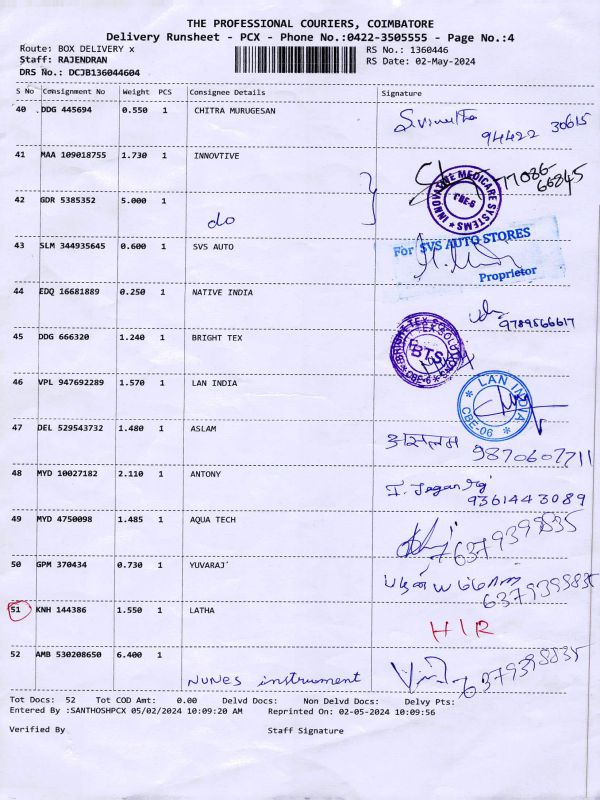 THE PROFESSIONAL COURIERS, COIMBATORE
Delivery Runsheet - PCX - Phone No.:0422-3505555 - Page No.:4
Route: BOX DELIVERY x RS No.: 1360446
Staff: RAJENDRAN RS Date: 02-May-2024
DRS No.: DCJB136044604
S No Consignment No Weight PCS Consignee Details Signature
40 DDG 445694 0.550 1 CHITRA MURUGESAN
94422 30615
41 MAA 109018755 1.730 1 INNOVTIVE 77086
66845
INNOVATIVE MEDICARE SYSTEMS
CBE-6
42 GDR 5385352 5.000 1
do
43 SLM 344935645 0.600 1 SVS AUTO
For SVS AUTO STORES
Proprietor
44 EDQ 16681889 0.250 1 NATIVE INDIA
9789566617
45 DDG 666320 1.240 1 BRIGHT TEX
BRIGHT TEX
BTS
CBE-6
46 VPL 947692289 1.570 1 LAN INDIA
LAN INDIA
CBE-06
47 DEL 529543732 1.480 1 ASLAM
9870607711
48 MYD 10027182 2.110 1 ANTONY
9361443089
49 MYD 4750098 1.485 1 AQUA TECH
6379399835
50 GPM 370434 0.730 1 YUVARAJ
51 KNH 144386 1.550 1 LATHA
HIR
52 AMB 530208650 6.400 1
NUNES instrument
Tot Docs: 52 Tot COD Amt: 0.00 Delvd Docs: Non Delvd Docs: Delvy Pts:
Entered By :SANTHOSHPCX 05/02/2024 10:09:20 AM Reprinted On: 02-05-2024 10:09:56
Verified By Staff Signature